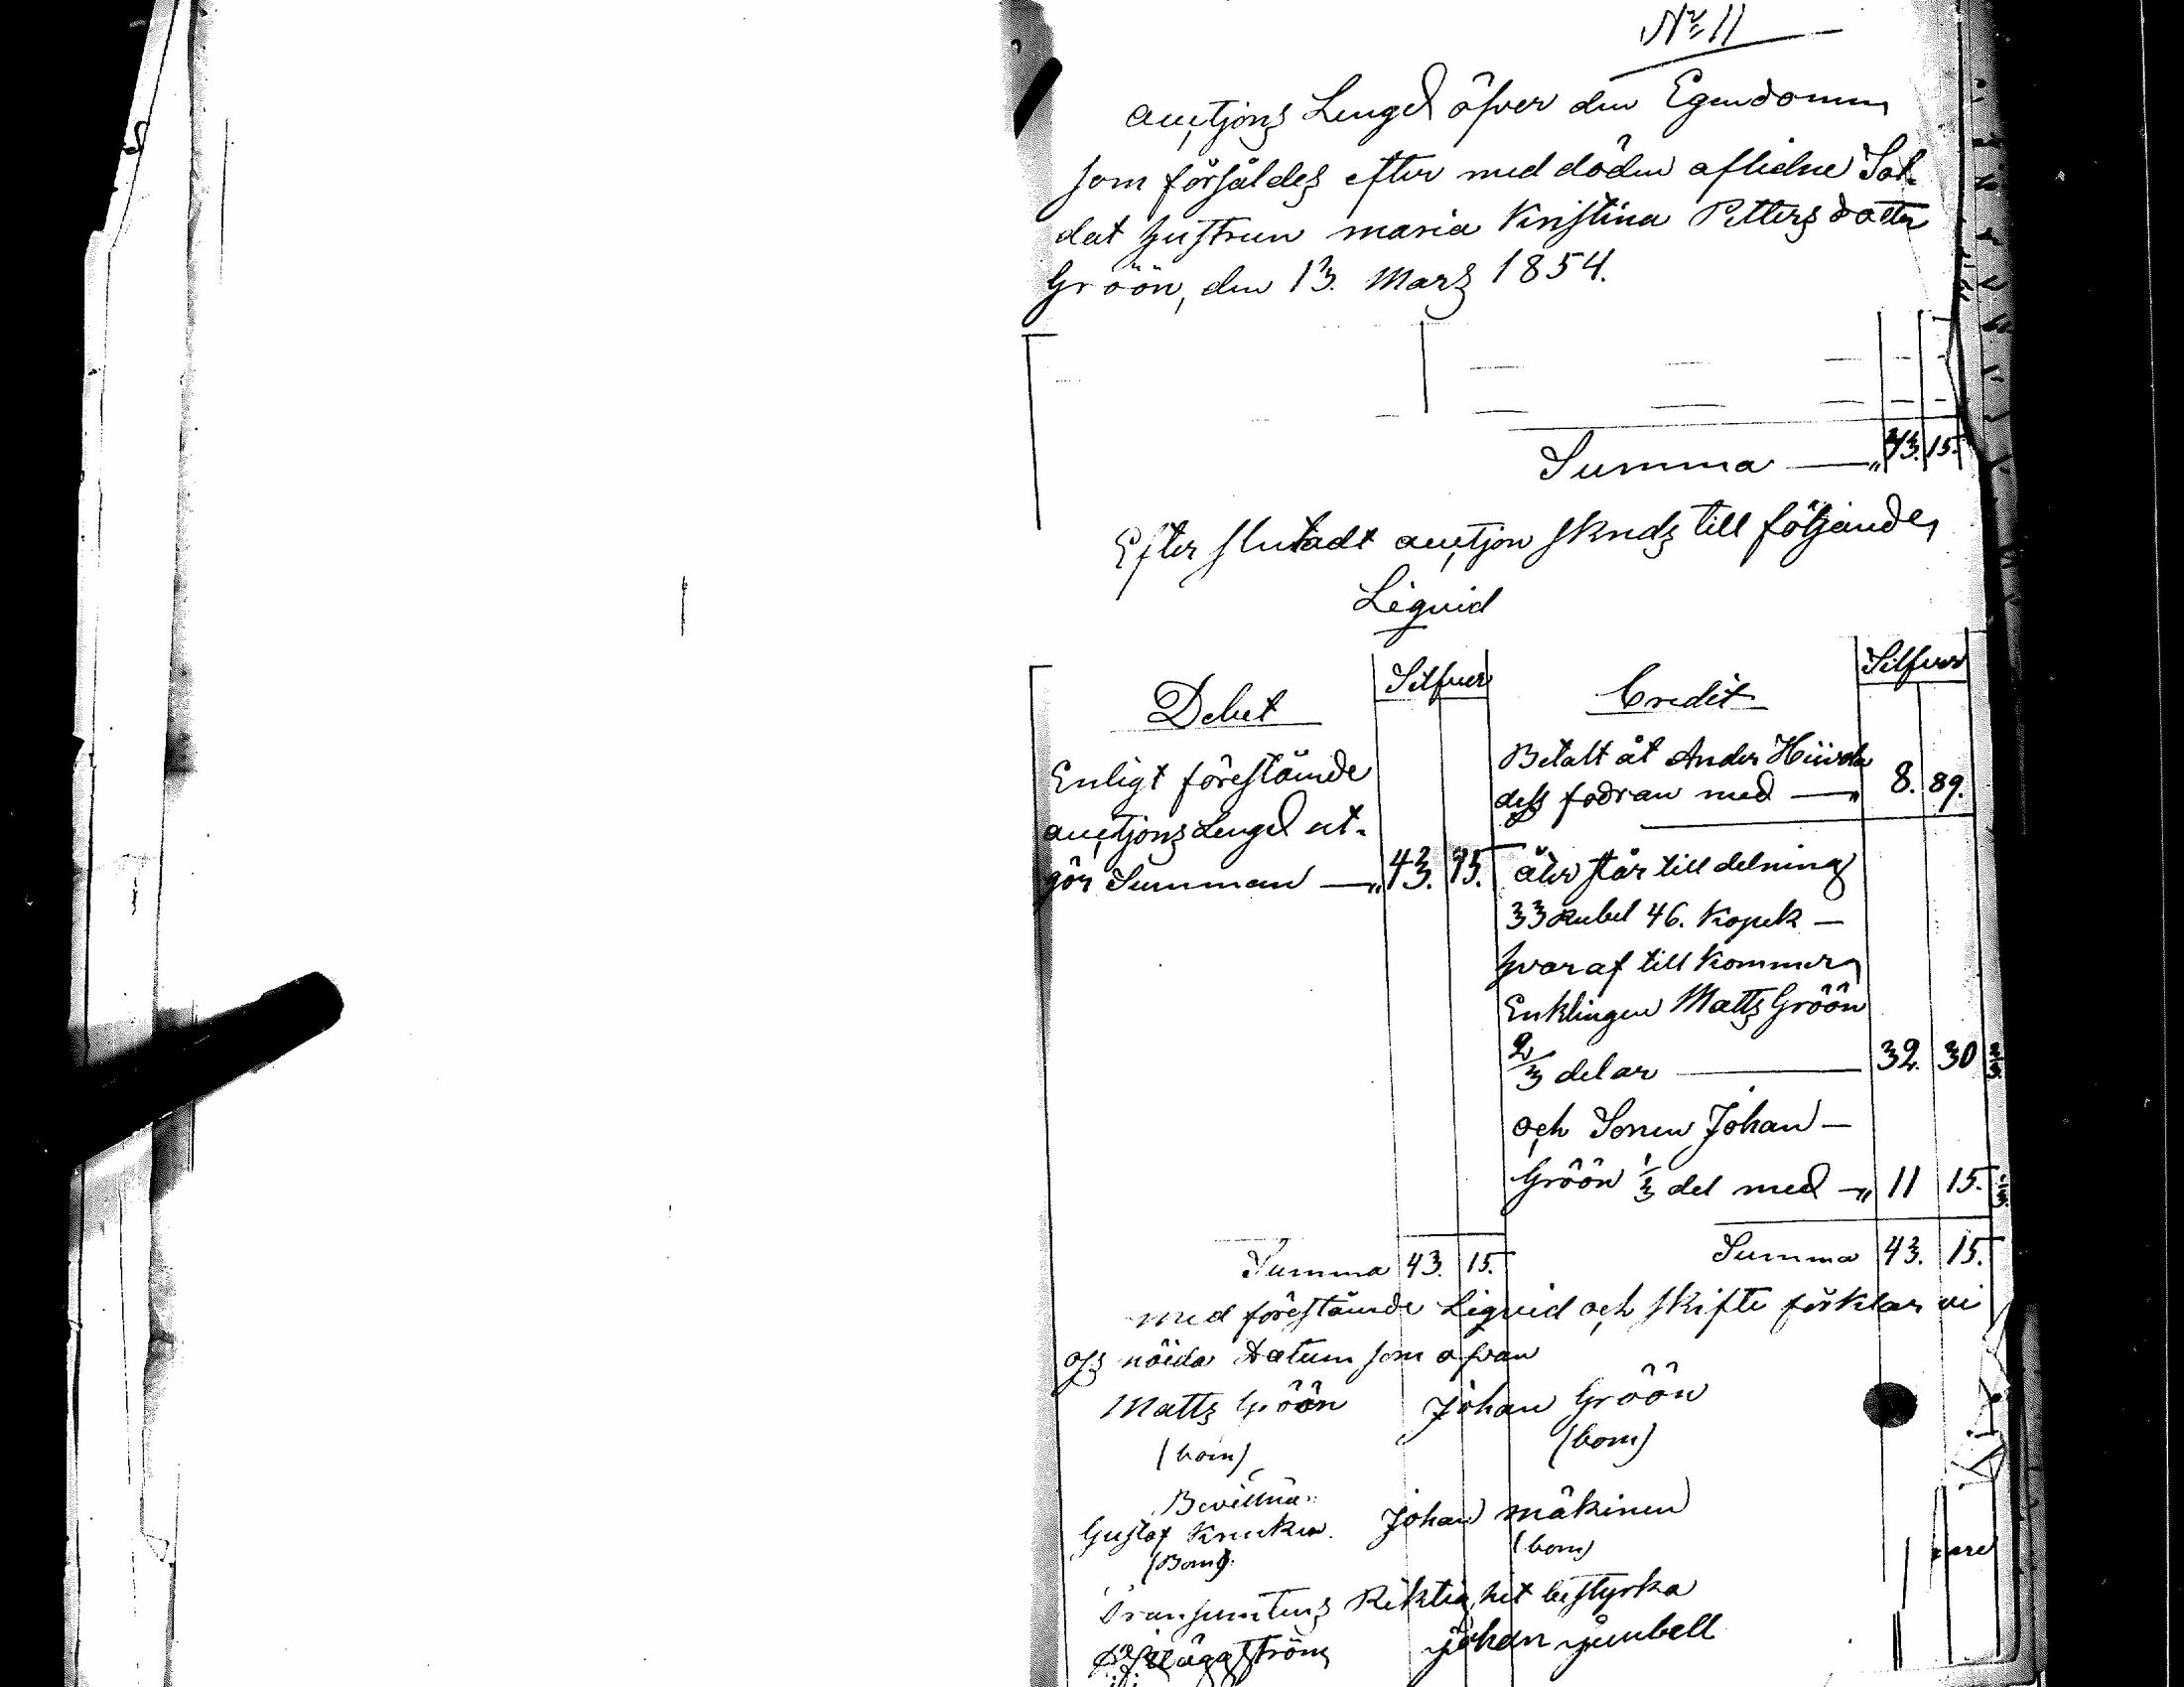 No 11
auctjons Lengd öfver den Egendomm
som försåldes efter med döden aflidne Sol-
dat hustrun maria Kristina Petters dotter
Gröön, den 13. Mars 1854.
Summa — " 43. 15.
Efter slutadt auctjon skreds till följande,
Liqvid
Debet Silfver Credit Silfver
Betalt åt Ander
Enligt förestående
dess fodran med — " 8. 89.
auctjons Lengd ut-
gör Summan — " 43. 15. åter står till delning
33 Rubel 46. Kopek —
hvaraf till kommer
Enklingen Matts Gröön
2/3 delar — 32. 30 2/3
och Sonen Johan —
Gröön 1/3 del med — " 11 15. 1/3
Summa 43. 15. Summa 43. 15.
med förestående Liqvid och skifte förklar vi
oss nöida Datum som ofvan
Matts Gröön Johan Gröön
(bom) (bom)
Bevittna:
Gustaf Johan mäkinen
(Bom) (bom)
Transumtens Riktighet bestyrka
Johan